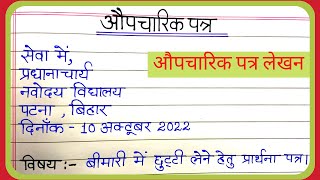 औपचारिक पत्र
सेवा में,
प्रधानाचार्य
औपचारिक पत्र लेखन
नवोदय विद्यालय
पटना , बिहार
दिनाँक - 10 अक्टूबर 2022
विषय :- बीमारी में छुट्टी लेने हेतु प्रार्थना पत्र।